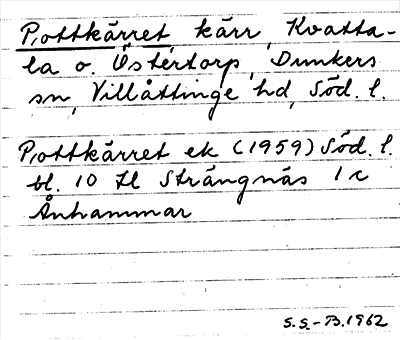 Pottkärret kärr, Kvatta-
la o. Östertorp, Dunkers
sn, Villåttinge hd, Söd. l.
Pottkärret ek (1959) Söd. l.
bl. 10 Il Strängnäs 1 c
Ånhammar
S.S. - B. 1962